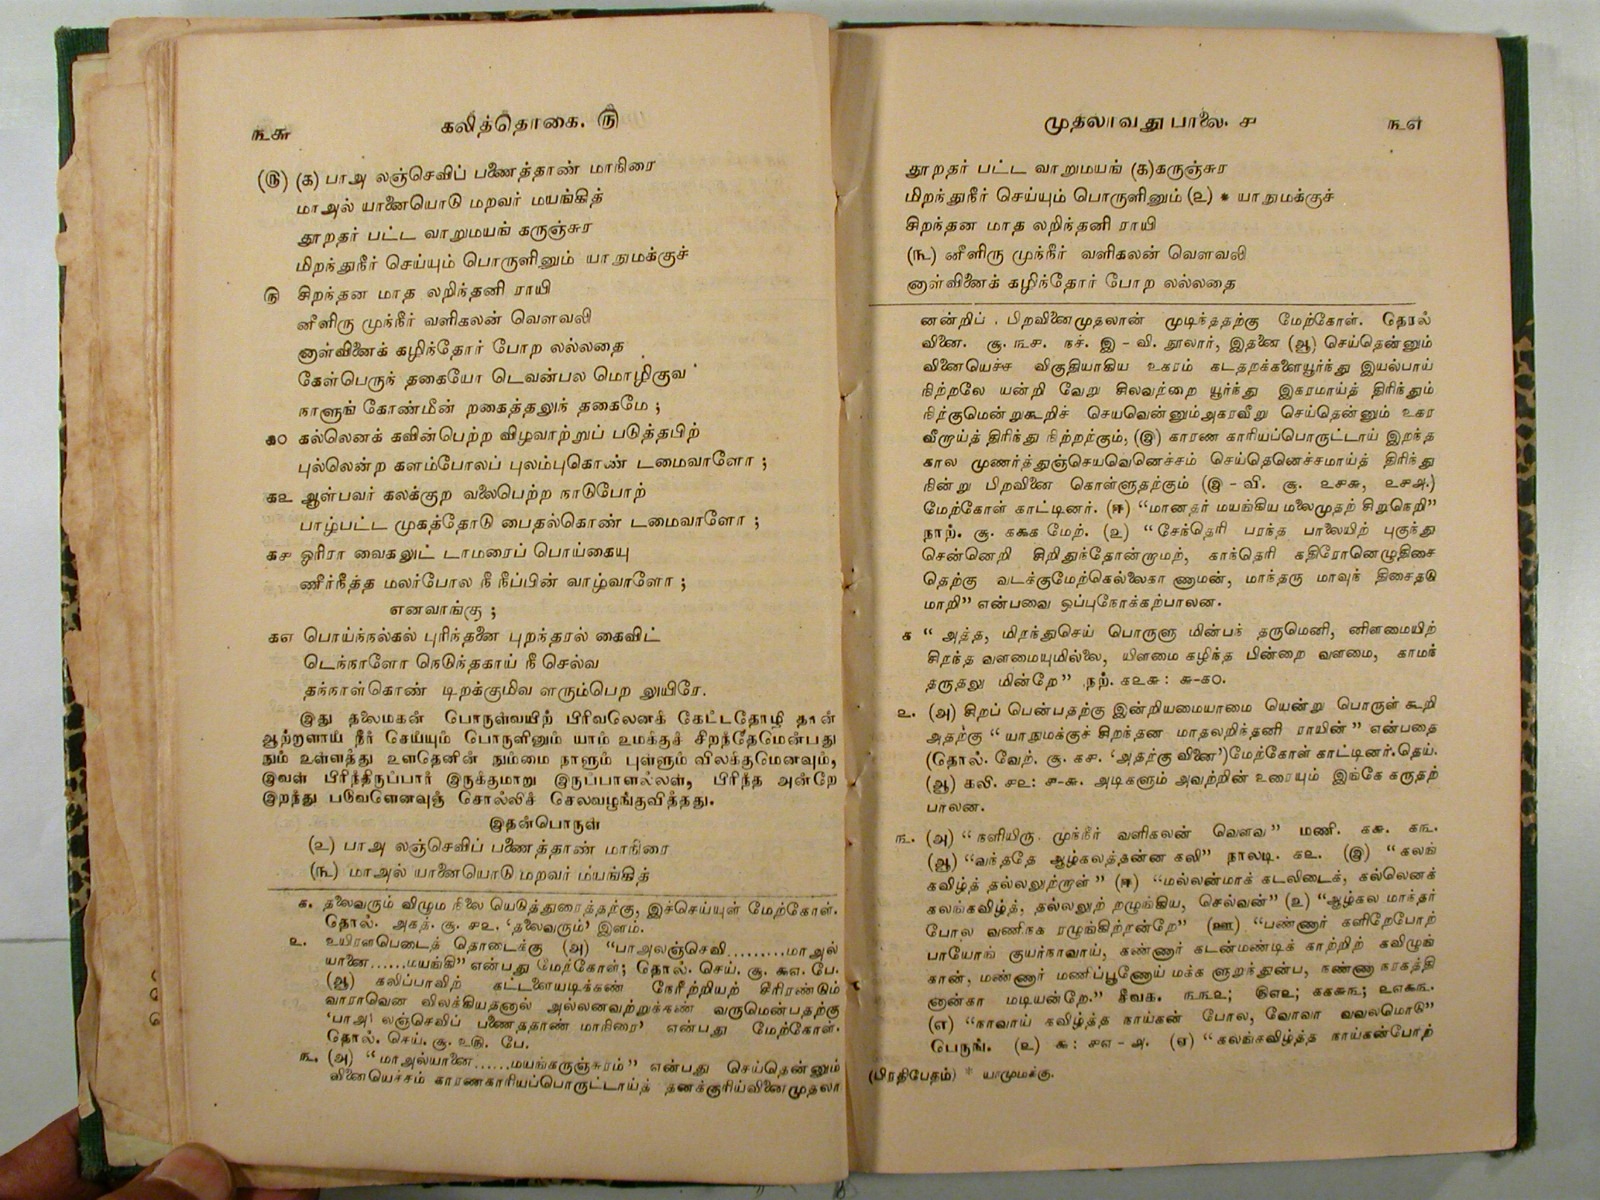 ௩௬
கலித்தொகை. ௫
(௫) (க) பாஅ லஞ்செவிப் பணைத்தாண் மாநிரை
மாஅல் யானையொடு மறவர் மயங்கித்
தூறதர் பட்ட வாறுமயங் கருஞ்சுர
மிறந்துநீர் செய்யும் பொருளினும் யாநுமக்குச்
௫ சிறந்தன மாத லறிந்தனி ராயி
னீளிரு முந்நீர் வளிகலன் வௌவலி
னாள்வினைக் கழிந்தோர் போற லல்லதை
கேள்பெருந் தகையோ டெவன்பல மொழிகுவ
நாளுங் கோண்மீன் றகைத்தலுந் தகைமே ;
௧௦ கல்லெனக் கவின்பெற்ற விழவாற்றுப் படுத்தபிற்
புல்லென்ற களம்போலப் புலம்புகொண் டமைவாளோ ;
௧௨ ஆள்பவர் கலக்குற வலைபெற்ற நாடுபோற்
பாழ்பட்ட முகத்தோடு பைதல்கொண் டமைவாளோ ;
௧௪ ஓரிரா வைகலுட் டாமரைப் பொய்கையு
ணீர்நீத்த மலர்போல நீ நீப்பின் வாழ்வாளோ ;
எனவாங்கு ;
௧௭ பொய்ந்நல்கல் புரிந்தனை புறந்தரல் கைவிட்
டெந்நாளோ நெடுந்தகாய் நீ செல்வ
தந்நாள்கொண் டிறக்குமிவ ளரும்பெற லுயிரே.
இது தலைமகன் பொருள்வயிற் பிரிவலெனக் கேட்டதோழி தான்
ஆற்றாளாய் நீர் செய்யும் பொருளினும் யாம் உமக்குச் சிறந்தேமென்பது
நும் உள்ளத்து உளதெனின் நும்மை நாளும் புள்ளும் விலக்குமெனவும்,
இவள் பிரிந்திருப்பார் இருக்குமாறு இருப்பாளல்லள், பிரிந்த அன்றே
இறந்து படுவளெனவுஞ் சொல்லிச் செலவழுங்குவித்தது.
இதன்பொருள்
(௨) பாஅ லஞ்செவிப் பணைத்தாண் மாநிரை
(௩) மாஅல் யானையொடு மறவர் மயங்கித்
௧. தலைவரும் விழும நிலை யெடுத்துரைத்தற்கு, இச்செய்யுள் மேற்கோள்.
தொல். அகத். சூ. ௪௨. 'தலைவரும்' இளம்.
௨. உயிரளபெடைத் தொடைக்கு (அ) “பாஅலஞ்செவி.........மாஅல்
யானை......மயங்கி” என்பது மேற்கோள்; தொல். செய். சூ. ௯௭. பே.
(ஆ) கலிப்பாவிற் கட்டளையடிக்கண் நேரீற்றியற் சீரிரண்டும்
வாராவென விலக்கியதனால் அல்லனவற்றுக்கண் வருமென்பதற்கு
'பாஅ லஞ்செவிப் பணைத்தாண் மாநிரை' என்பது மேற்கோள்.
தொல். செய். சூ. ௨௫. பே.
௩. (அ) “மாஅல்யானை......மயங்கருஞ்சுரம்” என்பது செய்தென்னும்
வினையெச்சம் காரணகாரியப்பொருட்டாய்த் தனக்குரியவினைமுதலா
முதலாவது பாலை. ௪
௩௭
தூறதர் பட்ட வாறுமயங் (௧)கருஞ்சுர
மிறந்துநீர் செய்யும் பொருளினும் (௨) * யாநுமக்குச்
சிறந்தன மாத லறிந்தனி ராயி
(௩) னீளிரு முந்நீர் வளிகலன் வௌவலி
னாள்வினைக் கழிந்தோர் போற லல்லதை
னன்றிப் பிறவினைமுதலான் முடிந்ததற்கு மேற்கோள். தொல்
வினை. சூ. ௩௪. நச். இ - வி. நூலார், இதனை (ஆ) செய்தென்னும்
வினையெச்ச விகுதியாகிய உகரம் கடதறக்களையூர்ந்து இயல்பாய்
நிற்றலே யன்றி வேறு சிலவற்றை யூர்ந்து இகரமாய்த் திரிந்தும்
நிற்குமென்றுகூறிச் செயவென்னும்அகரவீறு செய்தென்னும் உகர
வீறாய்த் திரிந்து நிற்றற்கும், (இ) காரண காரியப்பொருட்டாய் இறந்த
கால முணர்த்துஞ்செயவெனெச்சம் செய்தெனெச்சமாய்த் திரிந்து
நின்று பிறவினை கொள்ளுதற்கும் (இ - வி. சூ. ௨௪௬, ௨௪௮.)
மேற்கோள் காட்டினர். (ஈ) “மானதர் மயங்கிய மலைமுதற் சிறுநெறி”
நாற். சூ. ௧௬௧ மேற். (உ) “சேந்தெரி பரந்த பாலையிற் புகுந்து
சென்னெறி சிறிதுந்தோன்றாமற், காந்தெரி கதிரோனெழுதிசை
தெற்கு வடக்குமேற்கெல்லைகா ணாமன், மாந்தரு மாவுந் திசைதடு
மாறி” என்பவை ஒப்புநோக்கற்பாலன.
௧ “ அத்த, மிறந்துசெய் பொருளு மின்பந் தருமெனி, னிளமையிற்
சிறந்த வளமையுமில்லை, யிளமை கழிந்த பின்றை வளமை, காமந்
தருதலு மின்றே” நற். ௧௨௬ : ௬-௧௦.
௨. (அ) சிறப் பென்பதற்கு இன்றியமையாமை யென்று பொருள் கூறி
அதற்கு “ யாநுமக்குச் சிறந்தன மாதலறிந்தனி ராயின்” என்பதை
(தொல். வேற். சூ. ௧௪. 'அதற்கு வினை')மேற்கோள் காட்டினர்.தெய்.
(ஆ) கலி. ௪௨: ௪-௬. அடிகளும் அவற்றின் உரையும் இங்கே கருதற்
பாலன.
௩. (அ) “நளியிரு முந்நீர் வளிகலன் வௌவ” மணி. ௧௬. ௧௩.
(ஆ) “வந்ததே ஆழ்கலத்தன்ன கலி” நாலடி. ௧௨. (இ) “கலங்
கவிழ்த் தல்லலுற்றாள்” (ஈ) “மல்லன்மாக் கடலிடைக், கல்லெனக்
கலங்கவிழ்த், தல்லலுற் றழுங்கிய, செல்வன்” (உ) “ஆழ்கல மாந்தர்
போல வணிநக ரழுங்கிற்றன்றே” (ஊ) “பண்ணார் களிறேபோற்
பாயோங் குயர்நாவாய், கண்ணார் கடன்மண்டிக் காற்றிற் கவிழுங்
கான், மண்ணார் மணிப்பூணோய் மக்க ளுறுந்துன்ப, நண்ணா நரகத்தி
னான்கா மடியன்றே.” சீவக. ௩௩௨; ௫௭௨; ௧௧௬௩; ௨௭௬௩.
(எ) “நாவாய் கவிழ்த்த நாய்கன் போல, வோவா வவலமொடு”
பெருங். (௨) ௯ : ௪௭ - ௮. (ஏ) “கலங்கவிழ்த்த நாய்கன்போற்
(பிரதிபேதம்) * யாமுமக்கு.